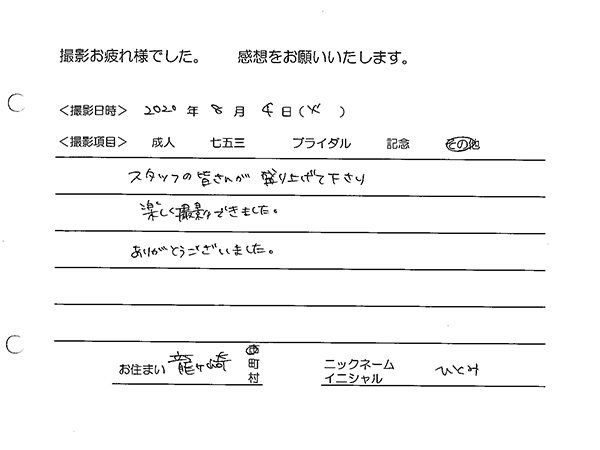 撮影お疲れ様でした。 感想をお願いいたします。
<撮影日時> 2020 年 8 月 4 日(火 )
<撮影項目> 成人 七五三 ブライダル 記念 その他
スタッフの皆さんが 盛り上げて下さり
楽しく撮影できました。
ありがとうございました。
お住まい 龍ヶ崎 市町村 ニックネーム イニシャル ひとみ